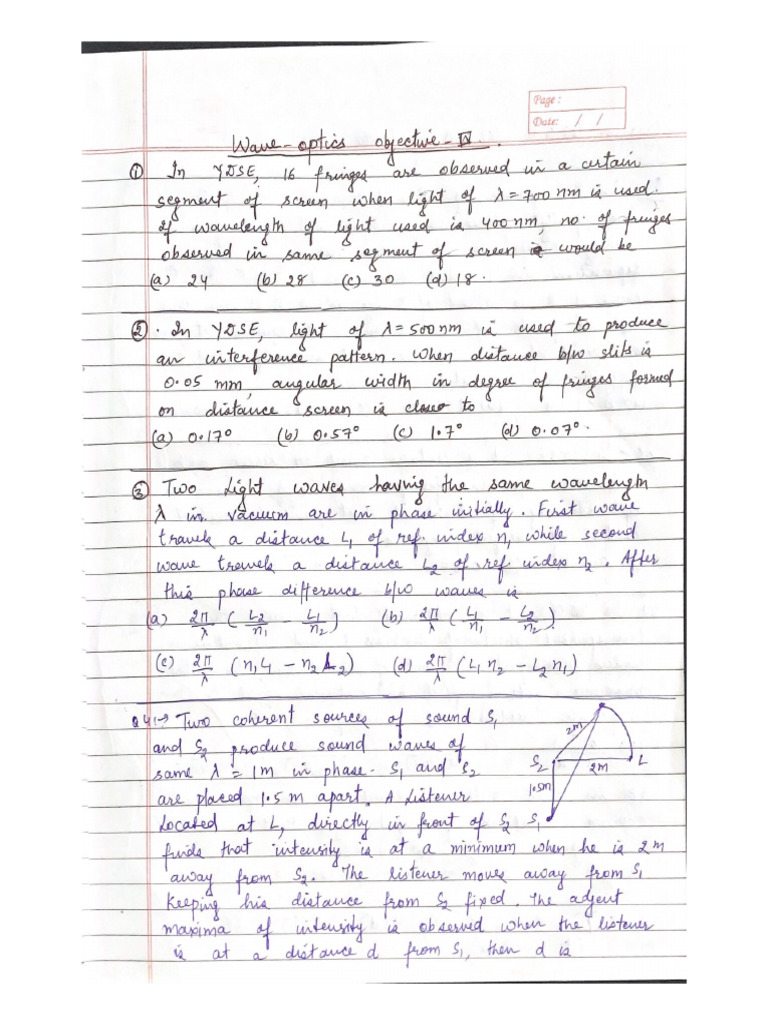 Page :
Date: / /
Wave-optics objective-IV.
① In YDSE, 16 fringes are observed in a certain
segment of screen when light of λ=700nm is used.
If wavelength of light used is 400nm, no. of fringes
observed in same segment of screen would be
(a) 24 (b) 28 (c) 30 (d) 18.
②. In YDSE, light of λ=500nm is used to produce
an interference pattern. When distance b/w slits is
0.05 mm, angular width in degree of fringes formed
on distance screen is close to
(a) 0.17° (b) 0.57° (c) 1.7° (d) 0.07°.
③ Two light waves having the same wavelength
λ in vacuum are in phase initially. First wave
travels a distance L₁ of ref. index n, while second
wave travels a distance L₂ of ref index n₂. After
this phase difference b/w waves is
(a) 2π/λ (L₂/n₁ - L₁/n₂) (b) 2π/λ (L₁/n₁ - L₂/n₂).
(c) 2π/λ (n₁L₁ - n₂L₂) (d) 2π/λ (L₁n₂ - L₂n₁)
Q41→ Two coherent sources of sound S₁
and S₂ produce sound waves of
same λ = 1m in phase. S₁ and S₂
are placed 1.5 m apart. A listener
located at L, directly in front of S₂
2m
S₂
2m
L
1.5m
S₁
finds that intensity is at a minimum when he is 2m
away from S₂. The listener moves away from S₁
keeping his distance from S₂ fixed. The adjent
maxima of intensity is observed when the listener
is at a distance d from S₁, then d is